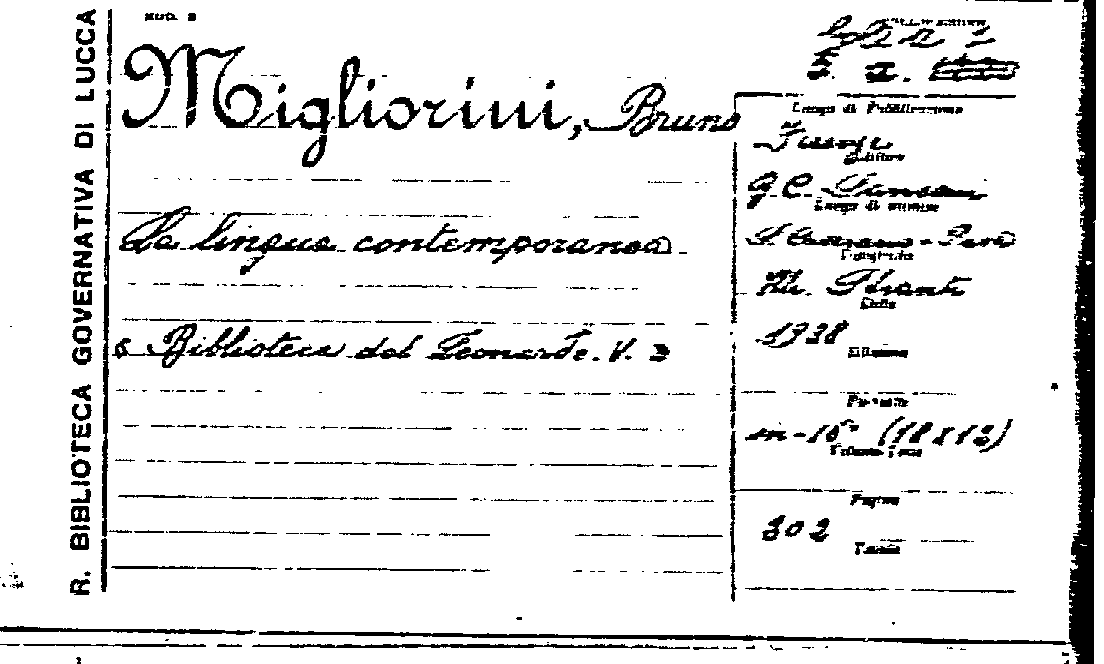 R. BIBLIOTECA GOVERNATIVA DI LUCCA
MOD. 2
Migliorini, Bruno
Luogo di Pubblicazione
Firenze
Editore
G. C. Sansoni
Luogo di stampa
La lingua contemporanea
S. Casciano - Pesa
Tipografia
Data
1938
Edizione
Biblioteca del Leonardo. V.
Formato
in-16° (18x12)
Pagine
302
Tavole